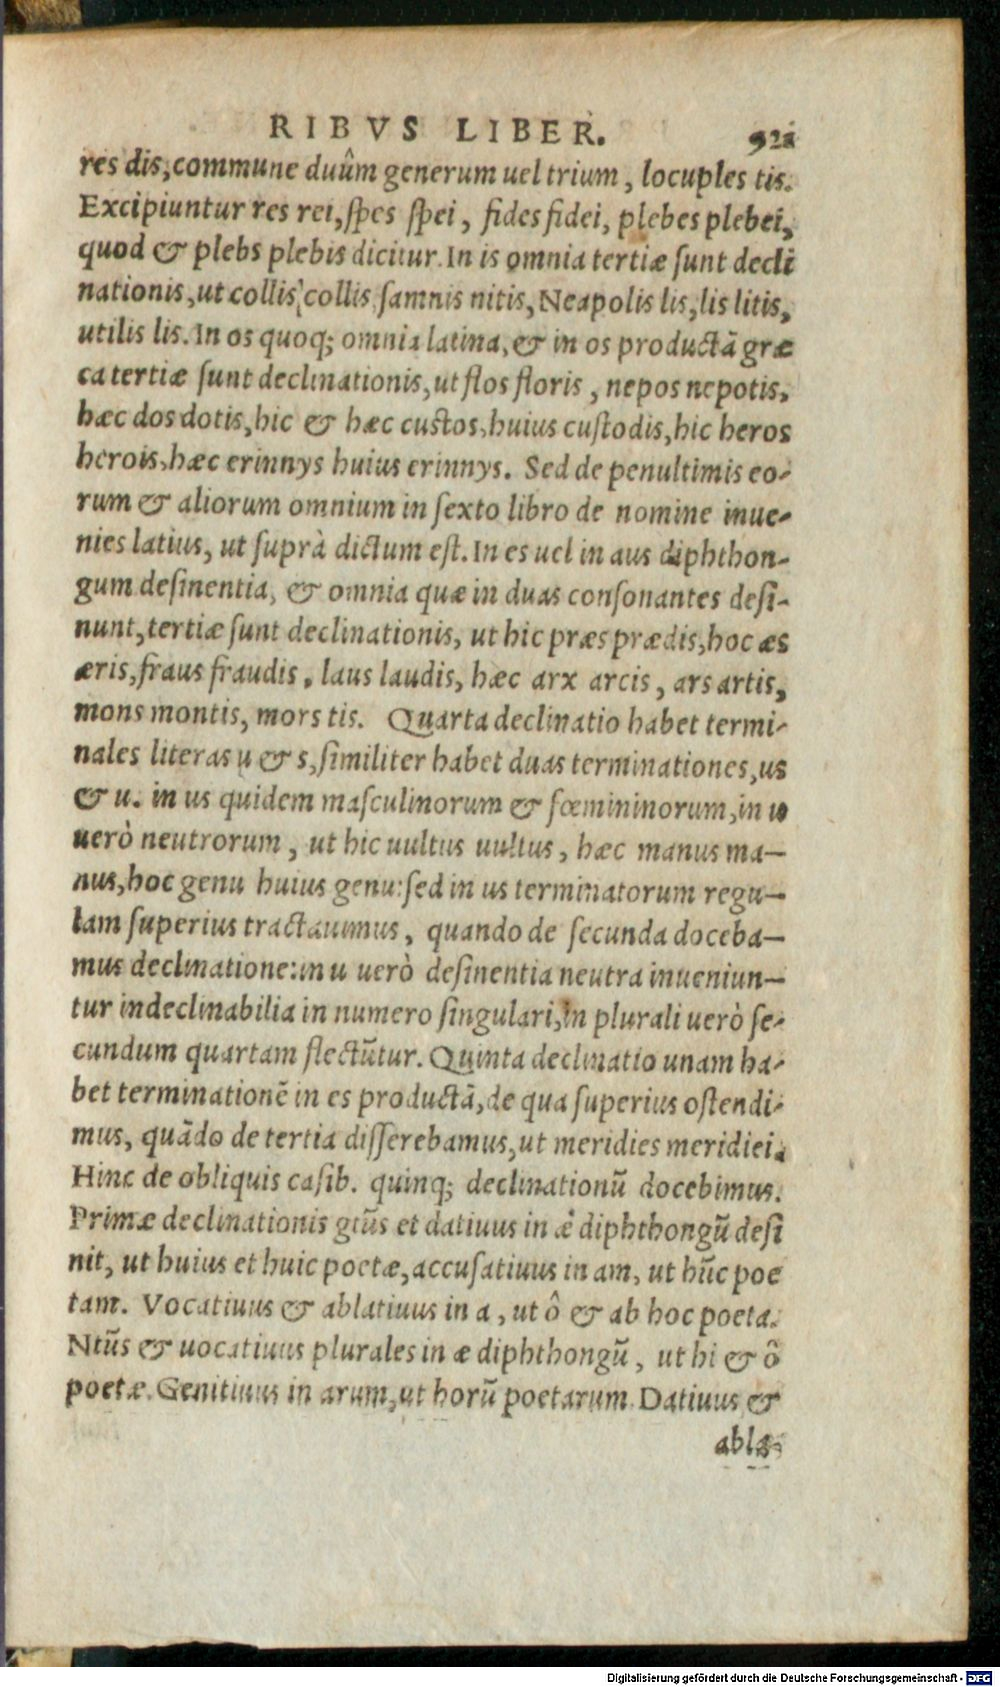 RIBVS LIBER. 921
res dis, commune duûm generum uel trium, locuples tis.
Excipiuntur res rei, spes spei, fides fidei, plebes plebei,
quod & plebs plebis dicitur. In is omnia tertiæ sunt decli
nationis, ut collis collis, samnis nitis, Neapolis lis, lis litis,
utilis lis. In os quoq; omnia latina, & in os productā græ
ca tertiæ sunt declinationis, ut flos floris, nepos nepotis,
hæc dos dotis, hic & hæc custos, huius custodis, hic heros
herois, hæc erinnys huius erinnys. Sed de penultimis eo-
rum & aliorum omnium in sexto libro de nomine inue-
nies latius, ut suprà dictum est. In es uel in aus diphthon-
gum desinentia, & omnia quæ in duas consonantes desi-
nunt, tertiæ sunt declinationis, ut hic præs prædis, hoc æs
æris, fraus fraudis, laus laudis, hæc arx arcis, ars artis,
mons montis, mors tis. Quarta declinatio habet termi-
nales literas u & s, similiter habet duas terminationes, us
& u. in us quidem masculinorum & fœmininorum, in u
uerò neutrorum, ut hic uultus uultus, hæc manus ma-
nus, hoc genu huius genu: sed in us terminatorum regu-
lam superius tractauimus, quando de secunda doceba-
mus declinatione: in u uerò desinentia neutra inueniun-
tur indeclinabilia in numero singulari, in plurali uerò se-
cundum quartam flectūtur. Quinta declinatio unam ha-
bet terminationē in es productā, de qua superius ostendi-
mus, quādo de tertia disserebamus, ut meridies meridiei.
Hinc de obliquis casib. quinq; declinationū docebimus.
Primæ declinationis gtūs et datiuus in æ diphthongū desi
nit, ut huius et huic poetæ, accusatiuus in am, ut hūc poe
tam. Vocatiuus & ablatiuus in a, ut ô & ab hoc poeta.
Ntūs & uocatiuus plurales in æ diphthongū, ut hi & ô
poetæ. Genitiuus in arum, ut horū poetarum. Datiuus &
abla-
Digitalisierung gefördert durch die Deutsche Forschungsgemeinschaft - DFG